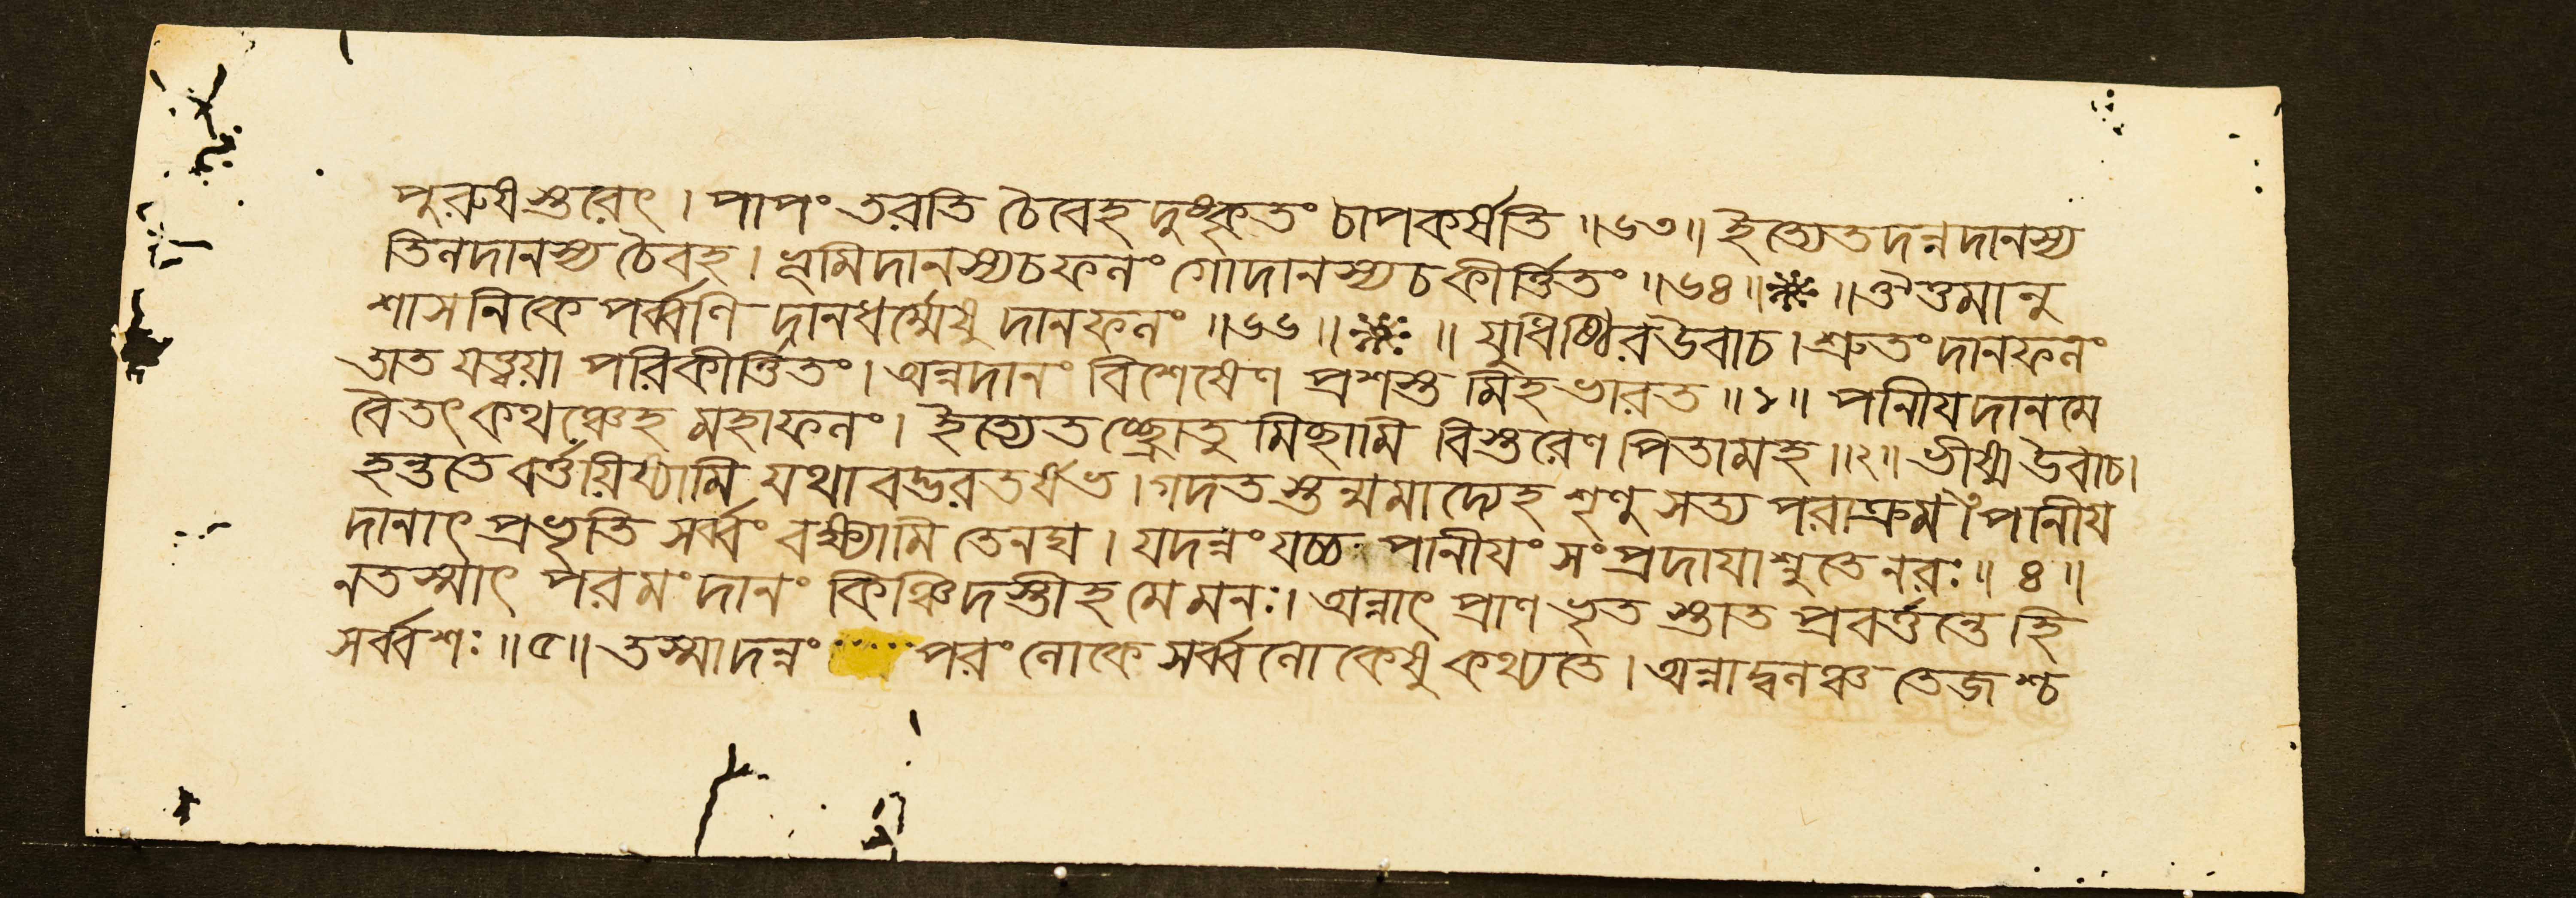 পুরুষস্তরেৎ । পাপং তরতি চৈবেহ দুষ্কৃতং চাপকর্ষতি ॥৬৩॥ ইত্যেতদন্নদানস্য
তিলদানস্য চৈবহ । ভূমিদানস্যচফলং গোদানস্যচকীর্ত্তিতং ॥৬৪॥ ❈ ॥ওঁতমানু
শাসনিকে পর্ব্বণি দানধর্ম্মেষু দানফলং ॥৬৬॥ ❈ ॥ যুধিষ্ঠিরউবাচ । শ্রুতং দানফলং
তাত যত্ত্বয়া পরিকীর্ত্তিতং । অন্নদানং বিশেষেণ প্রশস্তমিহভারত ॥১॥ পানীযদানমে
বৈতৎ কথঞ্চেহ মহাফলং । ইত্যেতচ্ছ্রোতুমিছামি বিস্তরেণ পিতামহ ॥২॥ ভীষ্মউবাচ ।
হন্ততে বর্ত্তয়িষ্যামি যথাবদ্ভরতর্ষভ । গদতস্তন্মমাদ্যেহ শৃণু সত্যপরাক্রম । পানীয
দানাৎ প্রভৃতি সর্ব্বং বক্ষ্যামি তেনঘ । যদন্নং যচ্চ পানীযং সংপ্রদাযাশ্নুতে নরঃ ॥৪॥
নতস্মাৎ পরমং দানং কিঞ্চিদস্তীহ মেমনঃ । অন্নাৎ প্রাণভৃতস্তাত প্রবর্ত্তন্তে হি
সর্ব্বশঃ ॥৫॥ তস্মাদন্নং পরং লোকে সর্ব্বলোকেষু কথ্যতে । অন্নাদ্বলঞ্চ তেজশ্চ